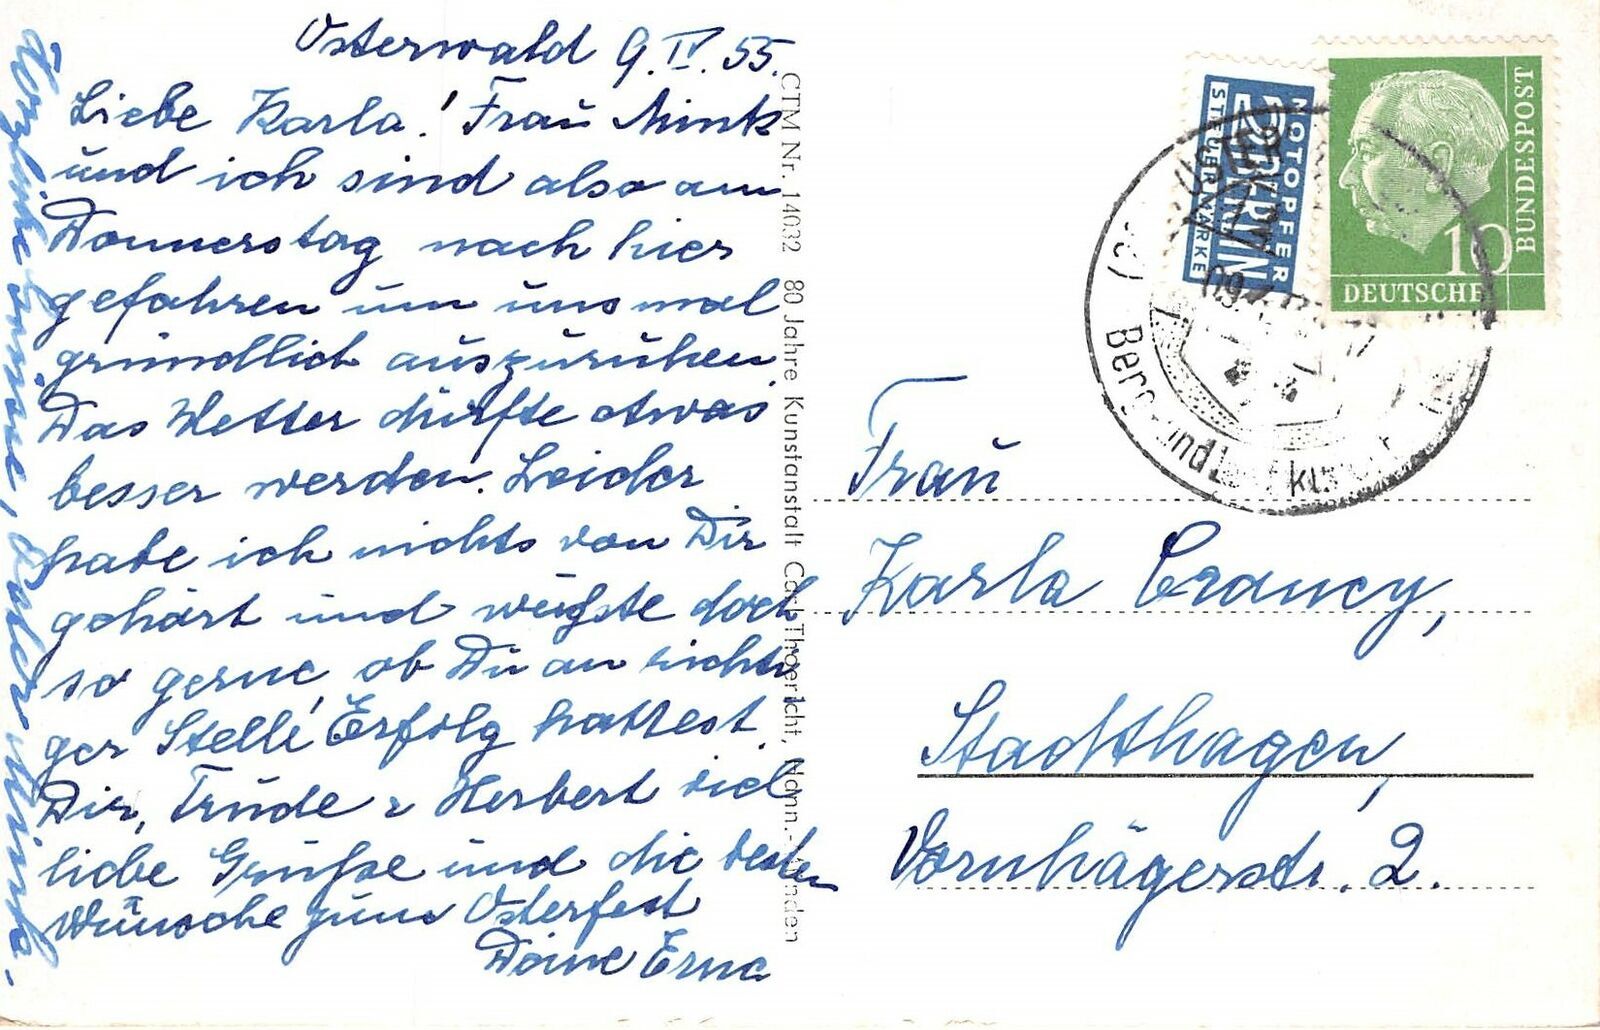 Osterwald 9. IV. 55.
Liebe Karla! Frau Mink
und ich sind also am
Donnerstag nach hier
gefahren um uns mal
gründlich auszuruhen.
Das Wetter dürfte etwas
besser werden. Leider
habe ich nichts von Dir
gehört und wüßte doch
so gerne, ob Du an richti
ger Stelle Erfolg hattest.
Dir, Trude u Herbert viel
liebe Grüße und die besten
Wünsche zum Osterfest
Deine Erna
Herzliche Grüsse,
Mink.
CTM Nr. 14032 80 Jahre Kunstanstalt Carl Thoericht, Hann.-Münden
NOTOPFER
2 BERLIN
STEUERMARKE
DEUTSCHE
BUNDESPOST
10
OSTERWALD
Berg- und
Frau
Karla Crancy,
Stadthagen,
Vornhägerstr. 2.